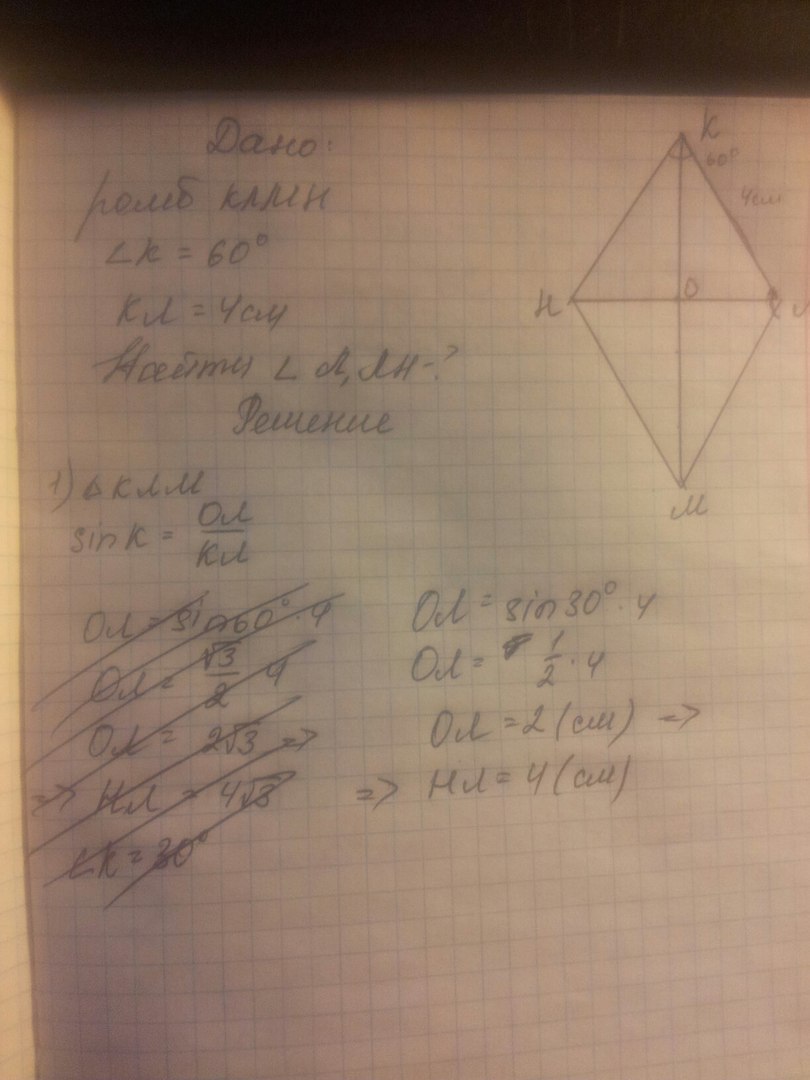 Дано:
ромб КЛМН
∠К = 60°
КЛ = 4см
Найти ∠Л, ЛН-?
Решение
1) Δ КЛМ
sin К = ОЛ/КЛ
ОЛ = sin 60° · 4
ОЛ = √3/2 · 4
ОЛ = 2√3 =>
=> НЛ = 4√3
∠К = 30°
ОЛ = sin 30° · 4
ОЛ = 1/2 · 4
ОЛ = 2 (см) =>
=> НЛ = 4 (см)
К
60°
4см
Н
О
Л
М